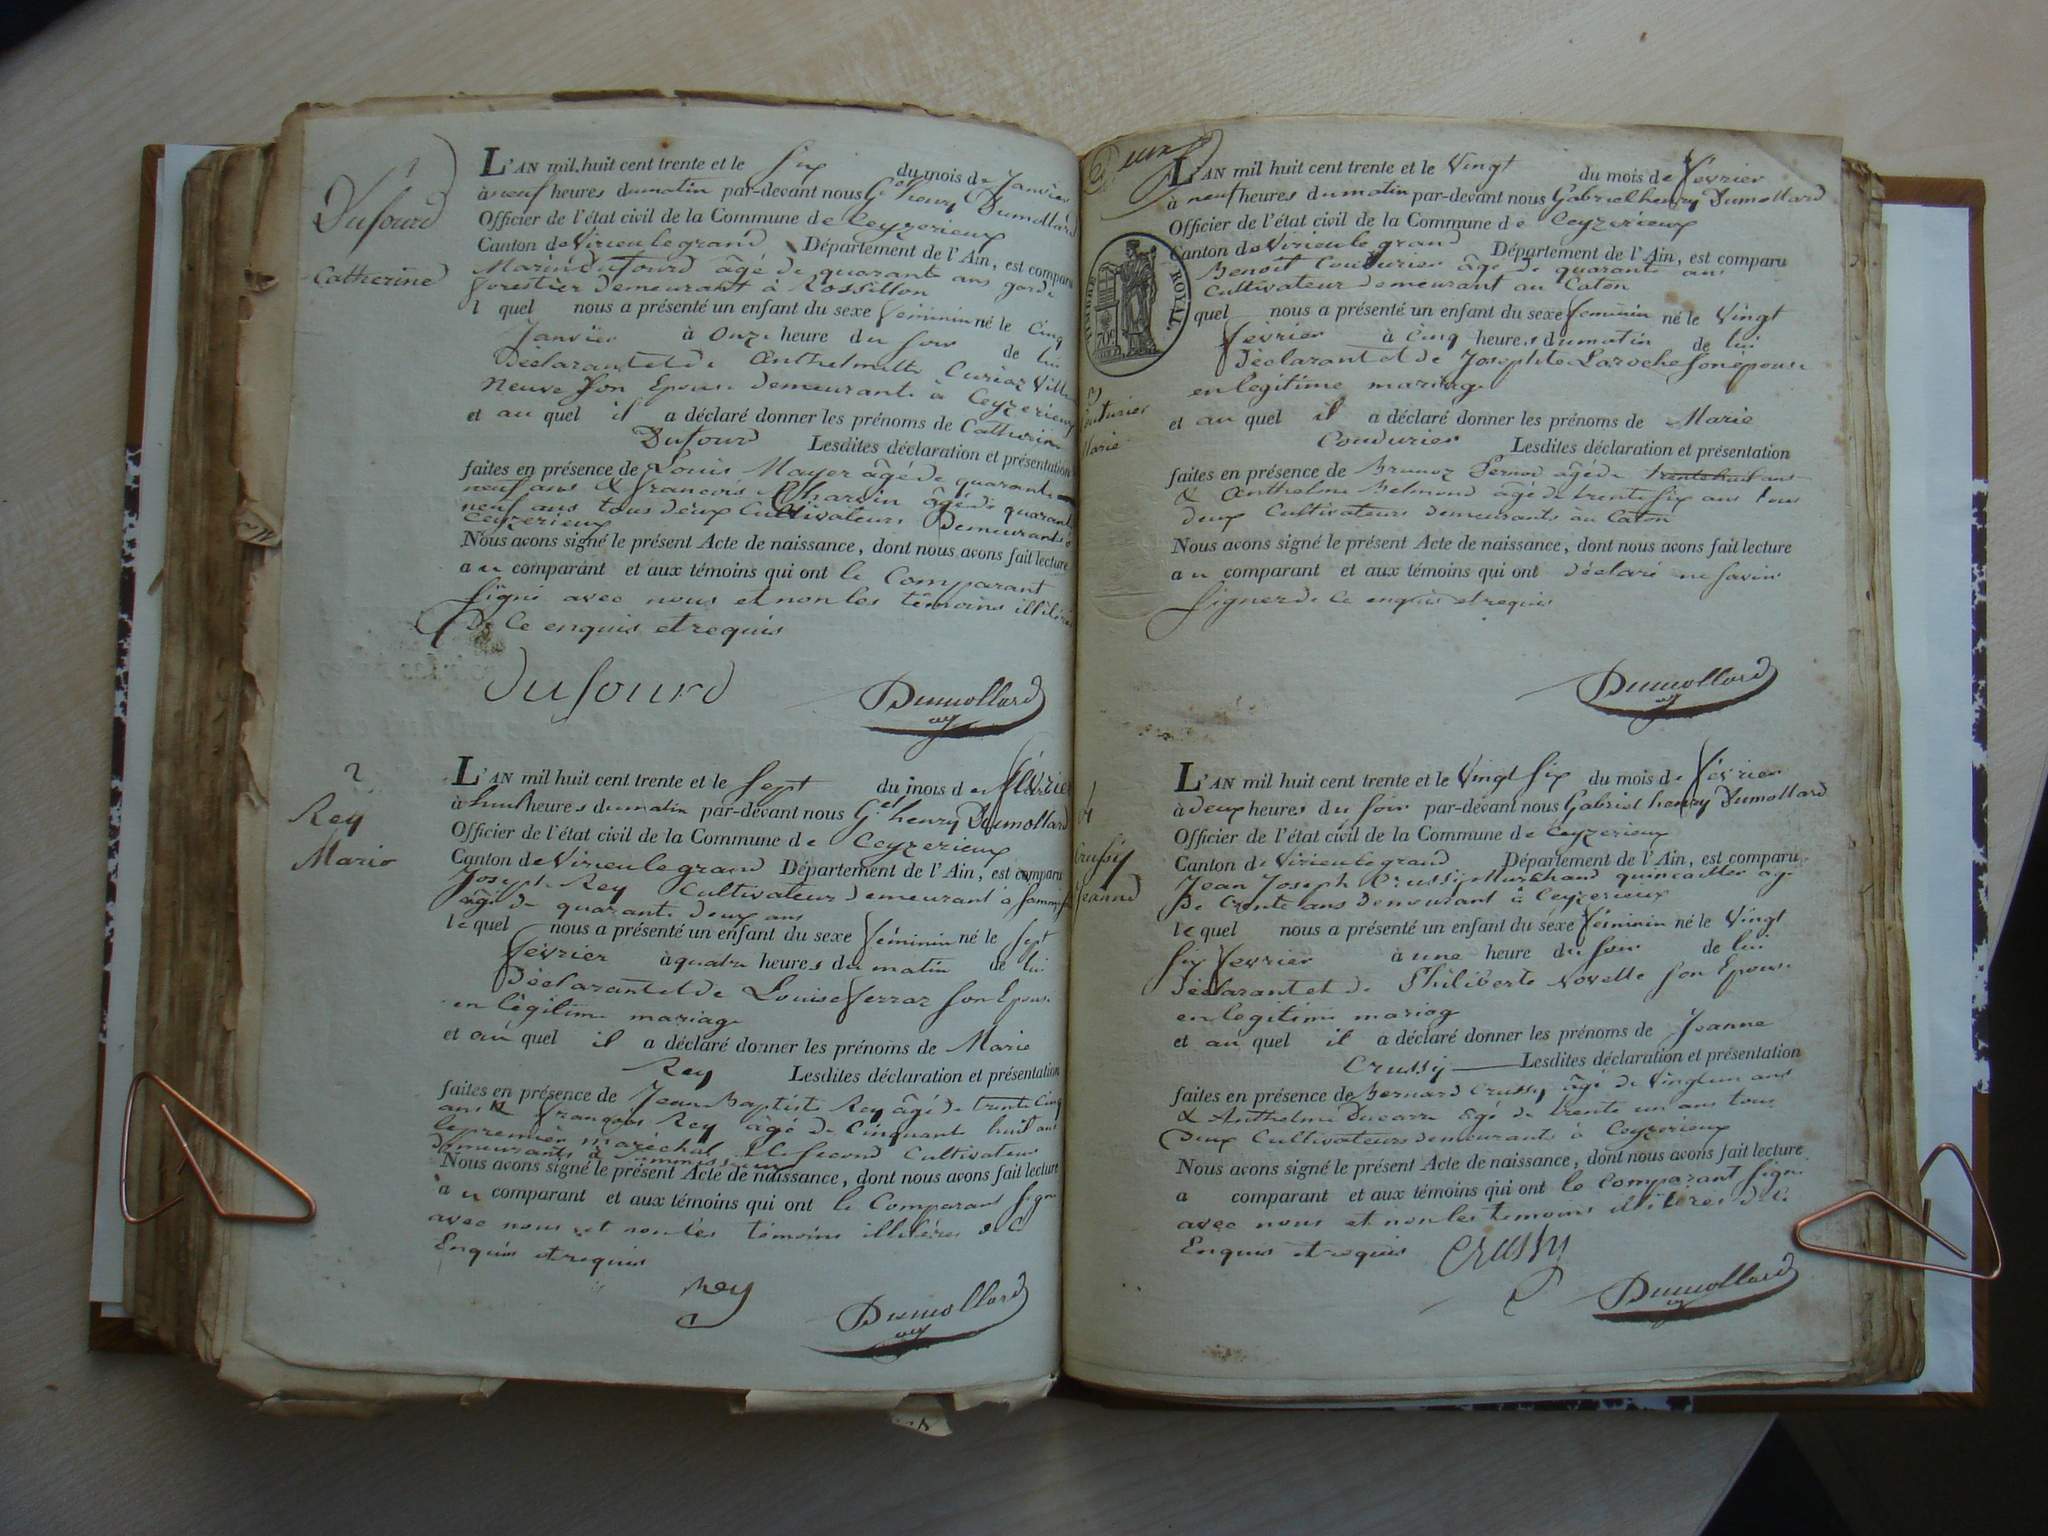 1
Dufourd
Catherine
L'AN mil huit cent trente et le six du mois de Janvier
à neuf heures du matin par-devant nous G.el henry Dumollard
Officier de l'état civil de la Commune de Ceyzerieux
Canton de Virieu le grand Département de l'Ain, est comparu
Marin Dufourd âgé de quarante ans garde
forestier demeurant à Rossillon
l quel nous a présenté un enfant du sexe féminin né le Cinq
Janvier à Onze heure du soir de lui
Déclarant et de Anthelmette Curiaz Ville
Neuve son Epouse demeurante à Ceyzerieux
et au quel il a déclaré donner les prénoms de Catherine
Dufourd Lesdites déclaration et présentation
faites en présence de Louis Mayer âgé de quarante
neuf ans & françois âgé de quarante
neuf ans tous deux Cultivateurs Demeurants à
Ceyzerieux
Nous avons signé le présent Acte de naissance, dont nous avons fait lecture
au comparant et aux témoins qui ont le Comparant
signé avec nous et non les témoins
De Ce enquis et requis
Dufourd Dumollard
2
Rey
Marie
L'AN mil huit cent trente et le sept du mois de février
à huit heures du matin par-devant nous G.el henry Dumollard
Officier de l'état civil de la Commune de Ceyzerieux
Canton de Virieu le grand Département de l'Ain, est comparu
Joseph Rey Cultivateur demeurant à
âgé de quarante deux ans
lequel nous a présenté un enfant du sexe féminin né le sept
février à quatre heures du matin de lui
Déclarant et de Louise ferraz son Epouse
en légitime mariage
et au quel il a déclaré donner les prénoms de Marie
Rey Lesdites déclaration et présentation
faites en présence de Jean Baptiste Rey âgé de trente Cinq
ans & françois Rey âgé de Cinquante huit ans
le premier maréchal & le second Cultivateur
demeurants à
Nous avons signé le présent Acte de naissance, dont nous avons fait lecture
au comparant et aux témoins qui ont le Comparant signé
avec nous et non les témoins illitéres de C
Enquis et requis
Rey Dumollard
Deux
L'AN mil huit cent trente et le Vingt du mois de février
à neuf heures du matin par-devant nous Gabriel henry Dumollard
Officier de l'état civil de la Commune de Ceyzerieux
Canton de Virieu le grand Département de l'Ain, est comparu
Benoît Couturier âgé de quarante ans
Cultivateur demeurant au Caton
quel nous a présenté un enfant du sexe féminin né le Vingt
février à Cinq heures du matin de lui
Déclarant et de Josephte Laroche son épouse
en légitime mariage
et au quel il a déclaré donner les prénoms de Marie
Couturier Lesdites déclaration et présentation
faites en présence de Brunoz Pernod âgé de trente huit ans
& Anthelme Belmond âgé de trente six ans tous
deux Cultivateurs demeurants au Caton
Nous avons signé le présent Acte de naissance, dont nous avons fait lecture
au comparant et aux témoins qui ont déclaré ne savoir
signer de Ce enquis et requis
Dumollard
TIMBRE ROYAL
3
Couturier
Marie
4
Crussy
Jeanne
L'AN mil huit cent trente et le Vingt six du mois de février
à deux heures du soir par-devant nous Gabriel henry Dumollard
Officier de l'état civil de la Commune de Ceyzerieux
Canton de Virieu le grand Département de l'Ain, est comparu
Jean Joseph Crussy Marchand quincaillier âgé
de trente ans demeurant à Ceyzerieux
lequel nous a présenté un enfant du sexe féminin né le Vingt
six février à une heure du soir de lui
Déclarant et de Philiberte Novelle son Epouse
en légitime mariage
et au quel il a déclaré donner les prénoms de Jeanne
Crussy Lesdites déclaration et présentation
faites en présence de Bernard Crussy âgé de Vingt un ans
& Anthelme Ducarre âgé de trente un ans tous
deux Cultivateurs demeurants à Ceyzerieux
Nous avons signé le présent Acte de naissance, dont nous avons fait lecture
a comparant et aux témoins qui ont le Comparant signé
avec nous et non les témoins illitéres de Ce
Enquis et requis Crussy
Dumollard